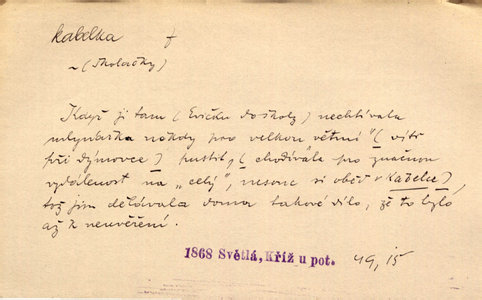 kabelka f
~ (školačky)
Když ji tam (Evičku do školy) nechtívala
mlynářka někdy pro velkou větrní" (vítr
při dýmovce) pustit, (chodívala pro značnou
vzdálenost na „celý", nesouc si oběd v kabelce),
tož jim dělávala doma takové dílo, že to bylo
až k neuvěření.
1868 Světlá, Kříž u pot. 49, 15